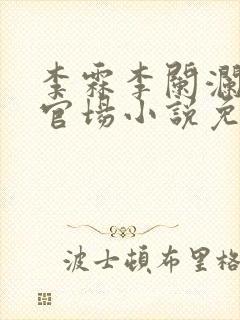 李霖李闌瀾
官場小説免
波士頓布里格